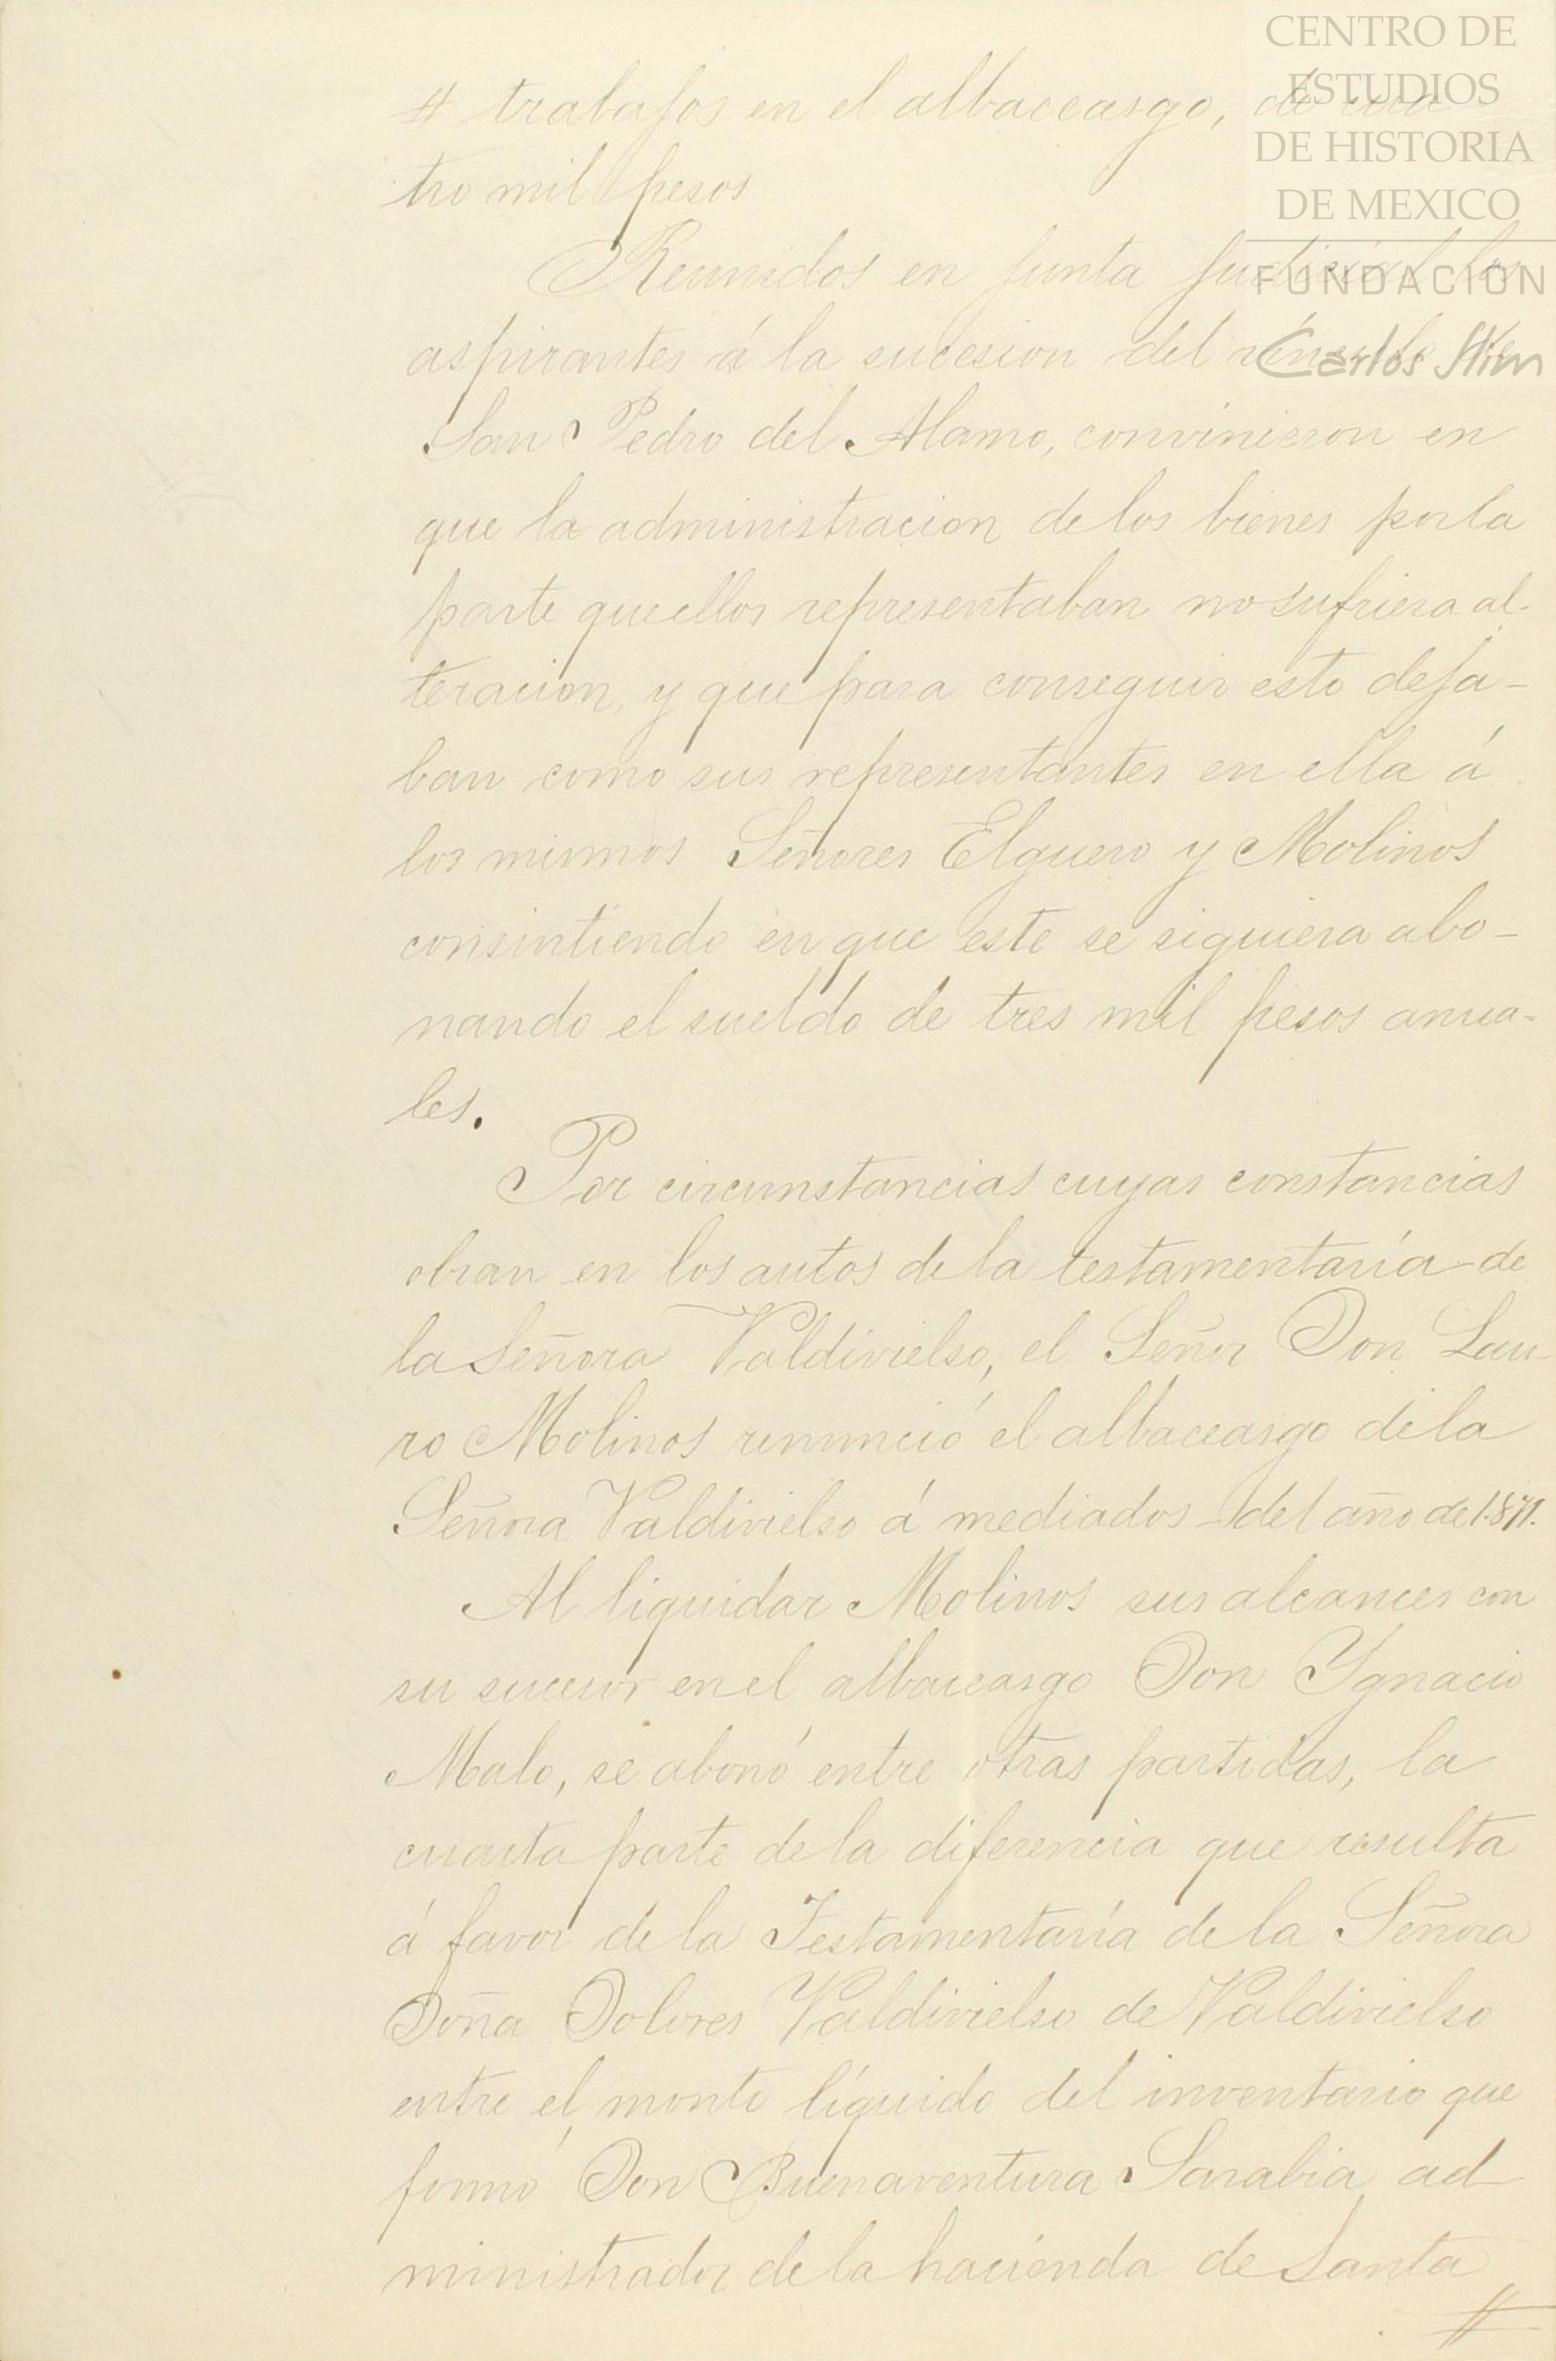 CENTRO DE
ESTUDIOS
DE HISTORIA
DE MEXICO
FUNDACION
Carlos Slim
# trabajos en el albaceasgo, de cua
tro mil pesos
Reunidos en junta judicial los
aspirantes á la sucesion del vínculo de
San Pedro del Alamo, convinieron en
que la administracion de los bienes por la
parte que ellos representaban no sufriera al-
teracion, y que para conseguir esto deja-
ban como sus representantes en ella á
los mismos Señores Elguero y Molinos
consintiendo en que este se siguiera abo-
nando el sueldo de tres mil pesos anua-
les.
Por circunstancias cuyas constancias
obran en los autos de la testamentaría de
la Señora Valdivielso, el Señor Don Lau-
ro Molinos renunció el albaceasgo de la
Señora Valdivielso á mediados del año de 1871.
Al liquidar Molinos sus alcances con
su sucesor en el albaceasgo Don Ygnacio
Malo, se abonó entre otras partidas, la
cuarta parte de la diferencia que resulta
á favor de la Testamentaría de la Señora
Doña Dolores Valdivielso de Valdivielso
entre el monto líquido del inventario que
formó Don Buenaventura Sarabia ad
ministrador de la hacienda de Santa
#